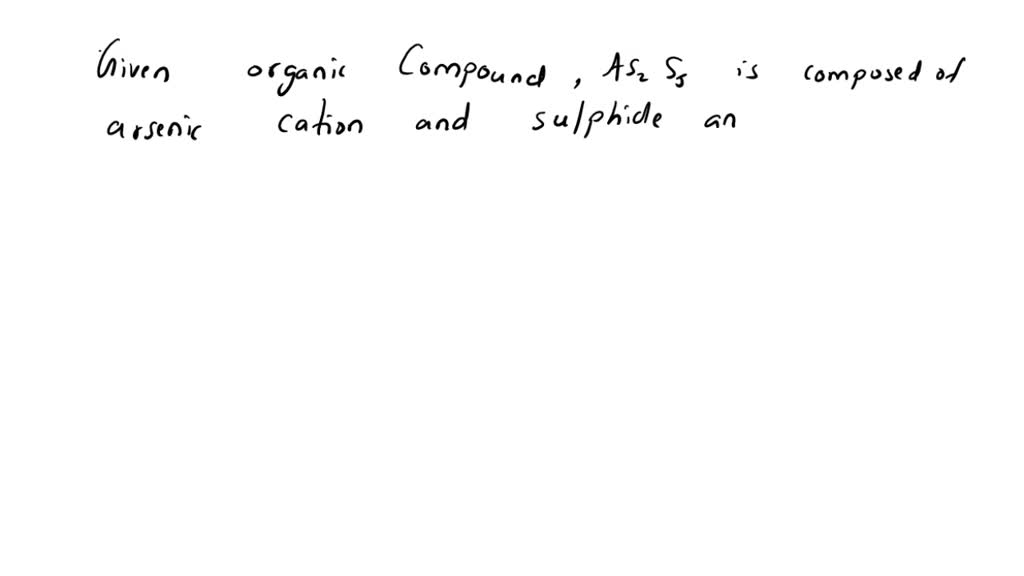 Given organic Compound, As₂ S₅ is composed of
arsenic cation and sulphide an